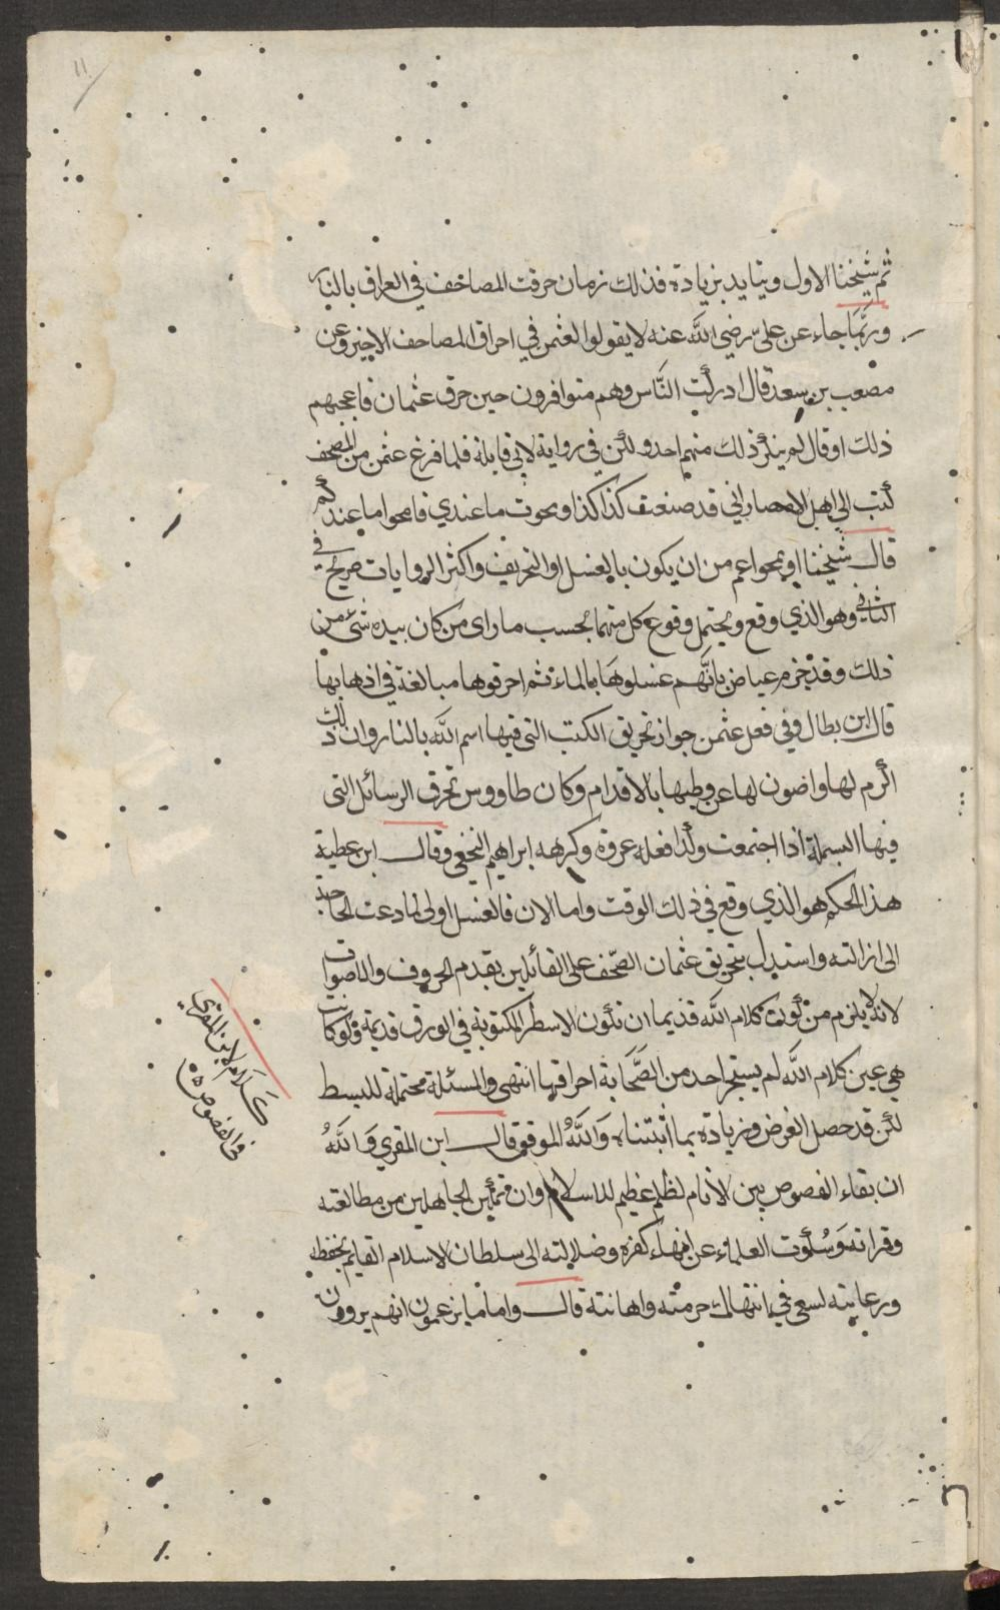 ١١
ثم شيخنا الاول ويتايد بزيادة فذلك زمان حرقت المصاحف في العراق بالنار
وربما جاء عن علي رضي الله عنه لا يقولوا لعثمن في احراق المصاحف الا خير وعن
مصعب بن سعد قال ادركت الناس وهم متوافرون حين حرق عثمان فاعجبهم
ذلك او قال لم ينكر ذلك منهم احد ولكن في رواية لابي قلابة فلما فرغ عثمن من المصحف
كتب الى اهل الامصار اني قد صنعت كذا كذا ومحوت ما عندي فامحوا ما عندكم
قال شيخنا او يمحو اعم من ان يكون بالغسل او التحريق واكثر الروايات صريح في
الثاني وهو الذي وقع ويحتمل وقوع كل منهما بحسب ما راى من كان بيده شئ من
ذلك وقد جزم عياض بانهم غسلوها بالماء ثم احرقوها مبالغة في اذهابها
قال ابن بطال وفي فعل عثمن جواز تحريق الكتب التي فيها اسم الله بالنار وان ذلك
اكرم لها واصون لها عن وطيها بالاقدام وكان طاووس تحرق الرسائل التي
فيها البسملة اذا اجتمعت وكذا فعله عروة وكرهه ابراهيم النخعي وقال ابن عطية
هذا الحكم هو الذي وقع في ذلك الوقت واما الان فالغسل اولى لما دعت الحاجة
الى ازالته واستدل بتحريق عثمان الصحف على القائلين بقدم الحروف والاصوات
لانه لا يلزم من كون كلام الله قديما ان تكون الاسطر المكتوبة في الورق قديمة ولو كانت
هي عين كلام الله لم يستجز احد من الصحابة احراقها انتهى والمسئلة محتملة للبسط
لكن قد حصل الغرض وزيادة بما اثبتناه والله الموفق قال ابن المقري والله
ان بقاء الفصوص بين الانام لظلم عظيم للاسلام وان تمكين الجاهلين من مطالعته
وقراته وسكوت العلماء عن انهاء كفره وضلالته الى سلطان الاسلام القايم بحفظه
ورعايته لسعي في انتهاك حرمته واهانته قال واما ما يزعمون انهم يروون
كلام لابن المقري
في الفصوص